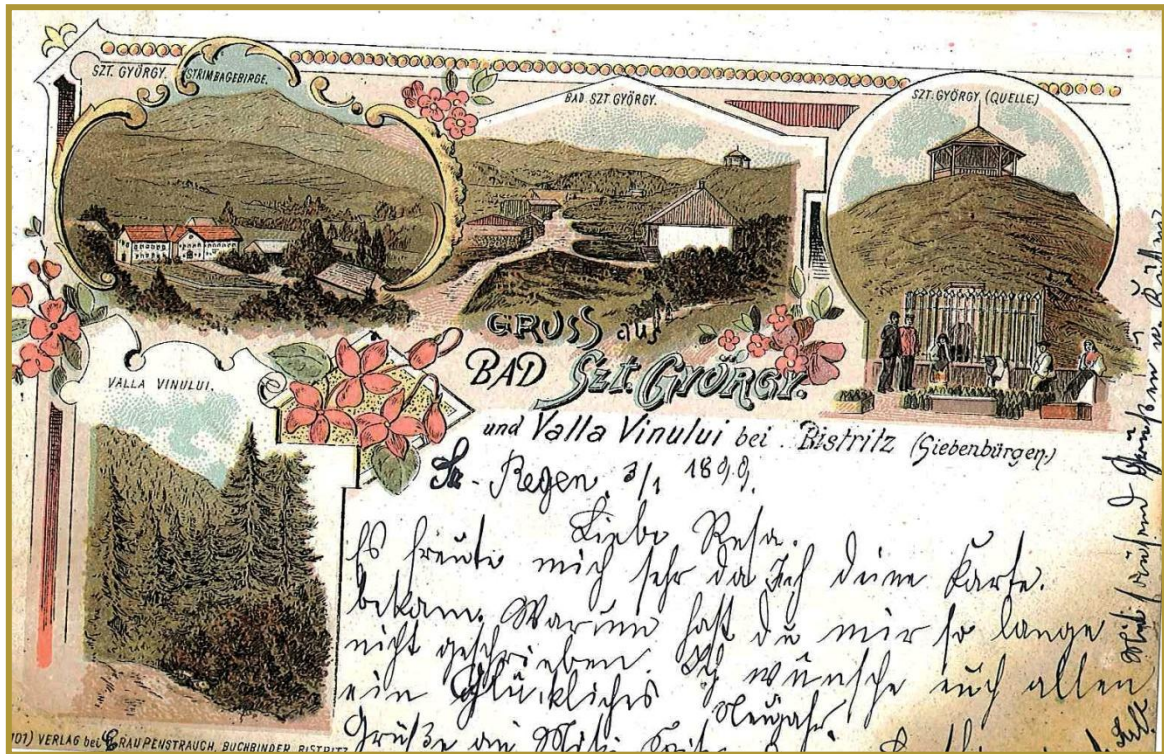 SZT. GYÖRGY. STRIMBAGEBIRGE.
BAD SZT. GYÖRGY.
SZT. GYÖRGY (QUELLE)
VALLA VINULUI.
GRUSS aus
BAD SZT. GYÖRGY.
und Valla Vinului bei Bistritz (Siebenbürgen)
Regen, 3/1 1899.
Liebe Resa.
Es freute mich sehr da Ich deine Karte.
bekam. Warum hast du mir so lange
nicht geschrieben. Ich wünsche euch allen
ein Glückliches Neujahr.
Grüße an
Mit tausend Grüßen u Küssen
VERLAG bei G. RAUPENSTRAUCH, BUCHBINDER, BISTRITZ